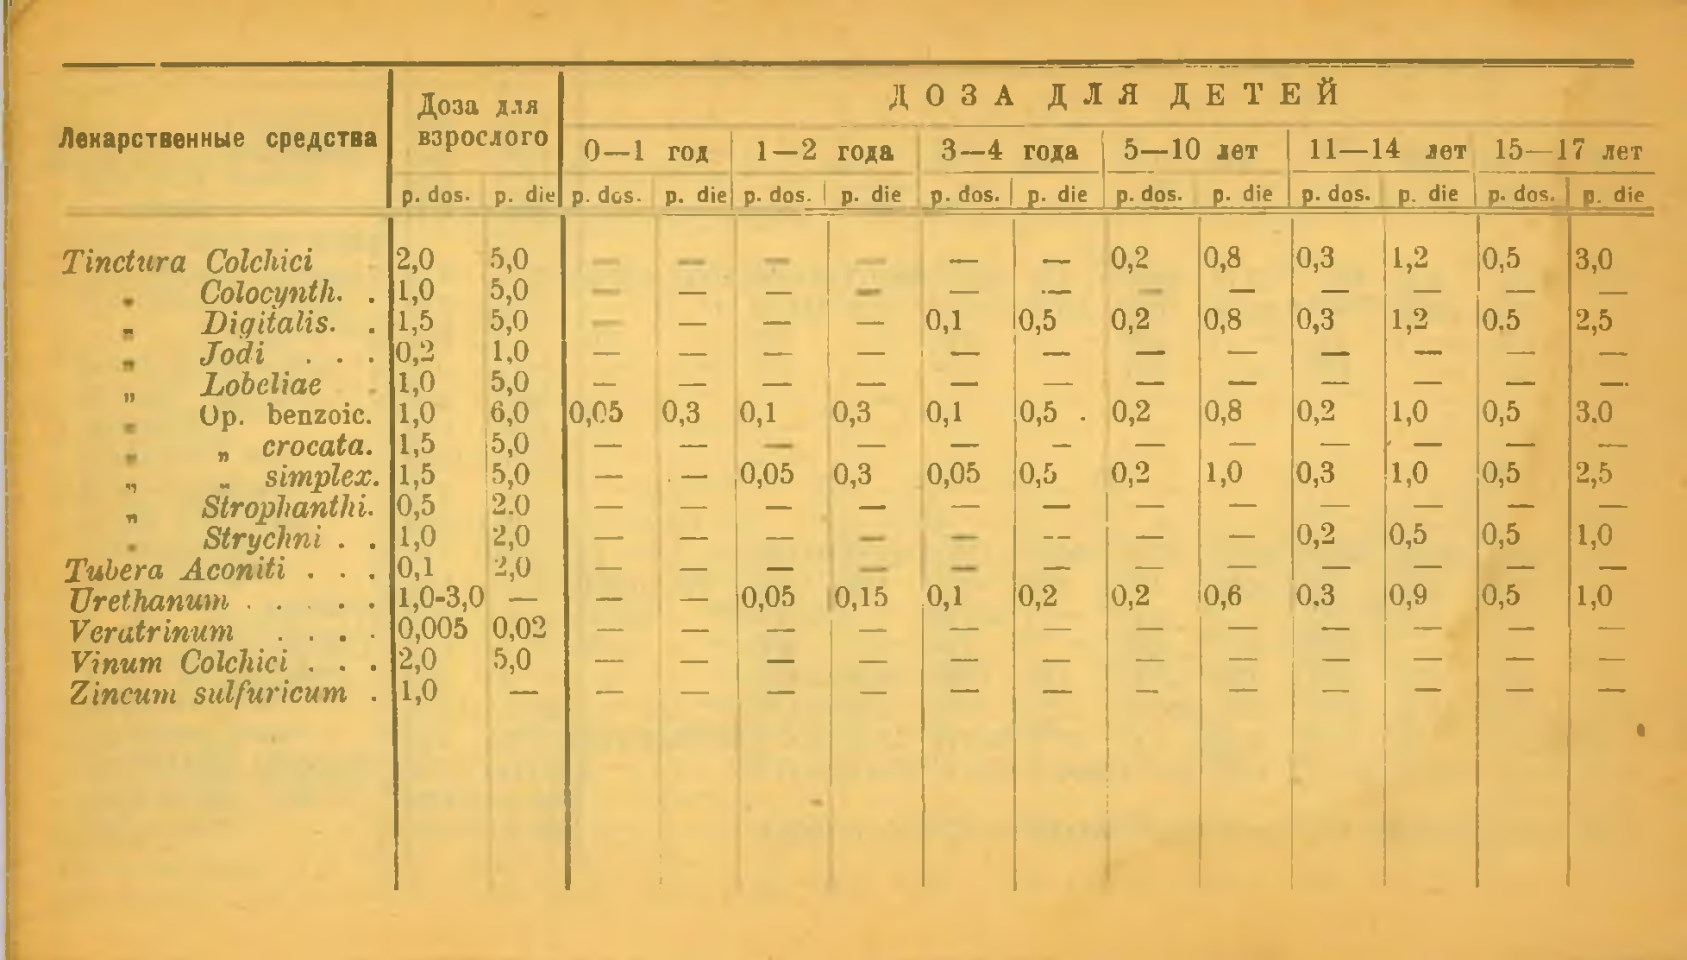 ДОЗА ДЛЯ ДЕТЕЙ
Лекарственные средства Доза для взрослого 0—1 год 1—2 года 3—4 года 5—10 лет 11—14 лет 15—17 лет
p. dos. p. die p. dos. p. die p. dos. p. die p. dos. p. die p. dos. p. die p. dos. p. die p. dos. p. die
Tinctura Colchici 2,0 5,0 — — — — — — 0,2 0,8 0,3 1,2 0,5 3,0
„ Colocynth. . 1,0 5,0 — — — — — — — — — — — —
„ Digitalis. . 1,5 5,0 — — — — 0,1 0,5 0,2 0,8 0,3 1,2 0,5 2,5
„ Jodi . . . 0,2 1,0 — — — — — — — — — — — —
„ Lobeliae . 1,0 5,0 — — — — — — — — — — — —
„ Op. benzoic. 1,0 6,0 0,05 0,3 0,1 0,3 0,1 0,5 0,2 0,8 0,2 1,0 0,5 3.0
„ „ crocata. 1,5 5,0 — — — — — — — — — — — —
„ „ simplex. 1,5 5,0 — — 0,05 0,3 0,05 0,5 0,2 1,0 0,3 1,0 0,5 2,5
„ Strophanthi. 0,5 2.0 — — — — — — — — — — — —
„ Strychni . . 1,0 2,0 — — — — — — — — 0,2 0,5 0,5 1,0
Tubera Aconiti . . . 0,1 2,0 — — — — — — — — — — — —
Urethanum . . . . . 1,0-3,0 — — — 0,05 0,15 0,1 0,2 0,2 0,6 0.3 0,9 0,5 1,0
Veratrinum . . . . 0,005 0,02 — — — — — — — — — — — —
Vinum Colchici . . . 2,0 5,0 — — — — — — — — — — — —
Zincum sulfuricum . 1,0 — — — — — — — — — — — — —